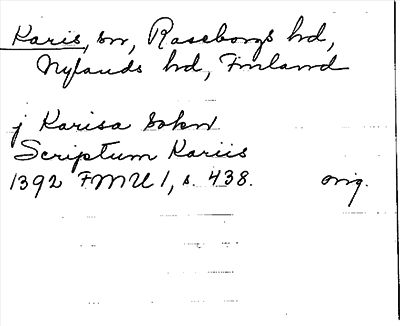 Karis, sn, Raseborgs hd,
Nylands hd, Finland
j Karisa sokn
Scriptum Kariis
1392 FMU 1, s. 438. orig.